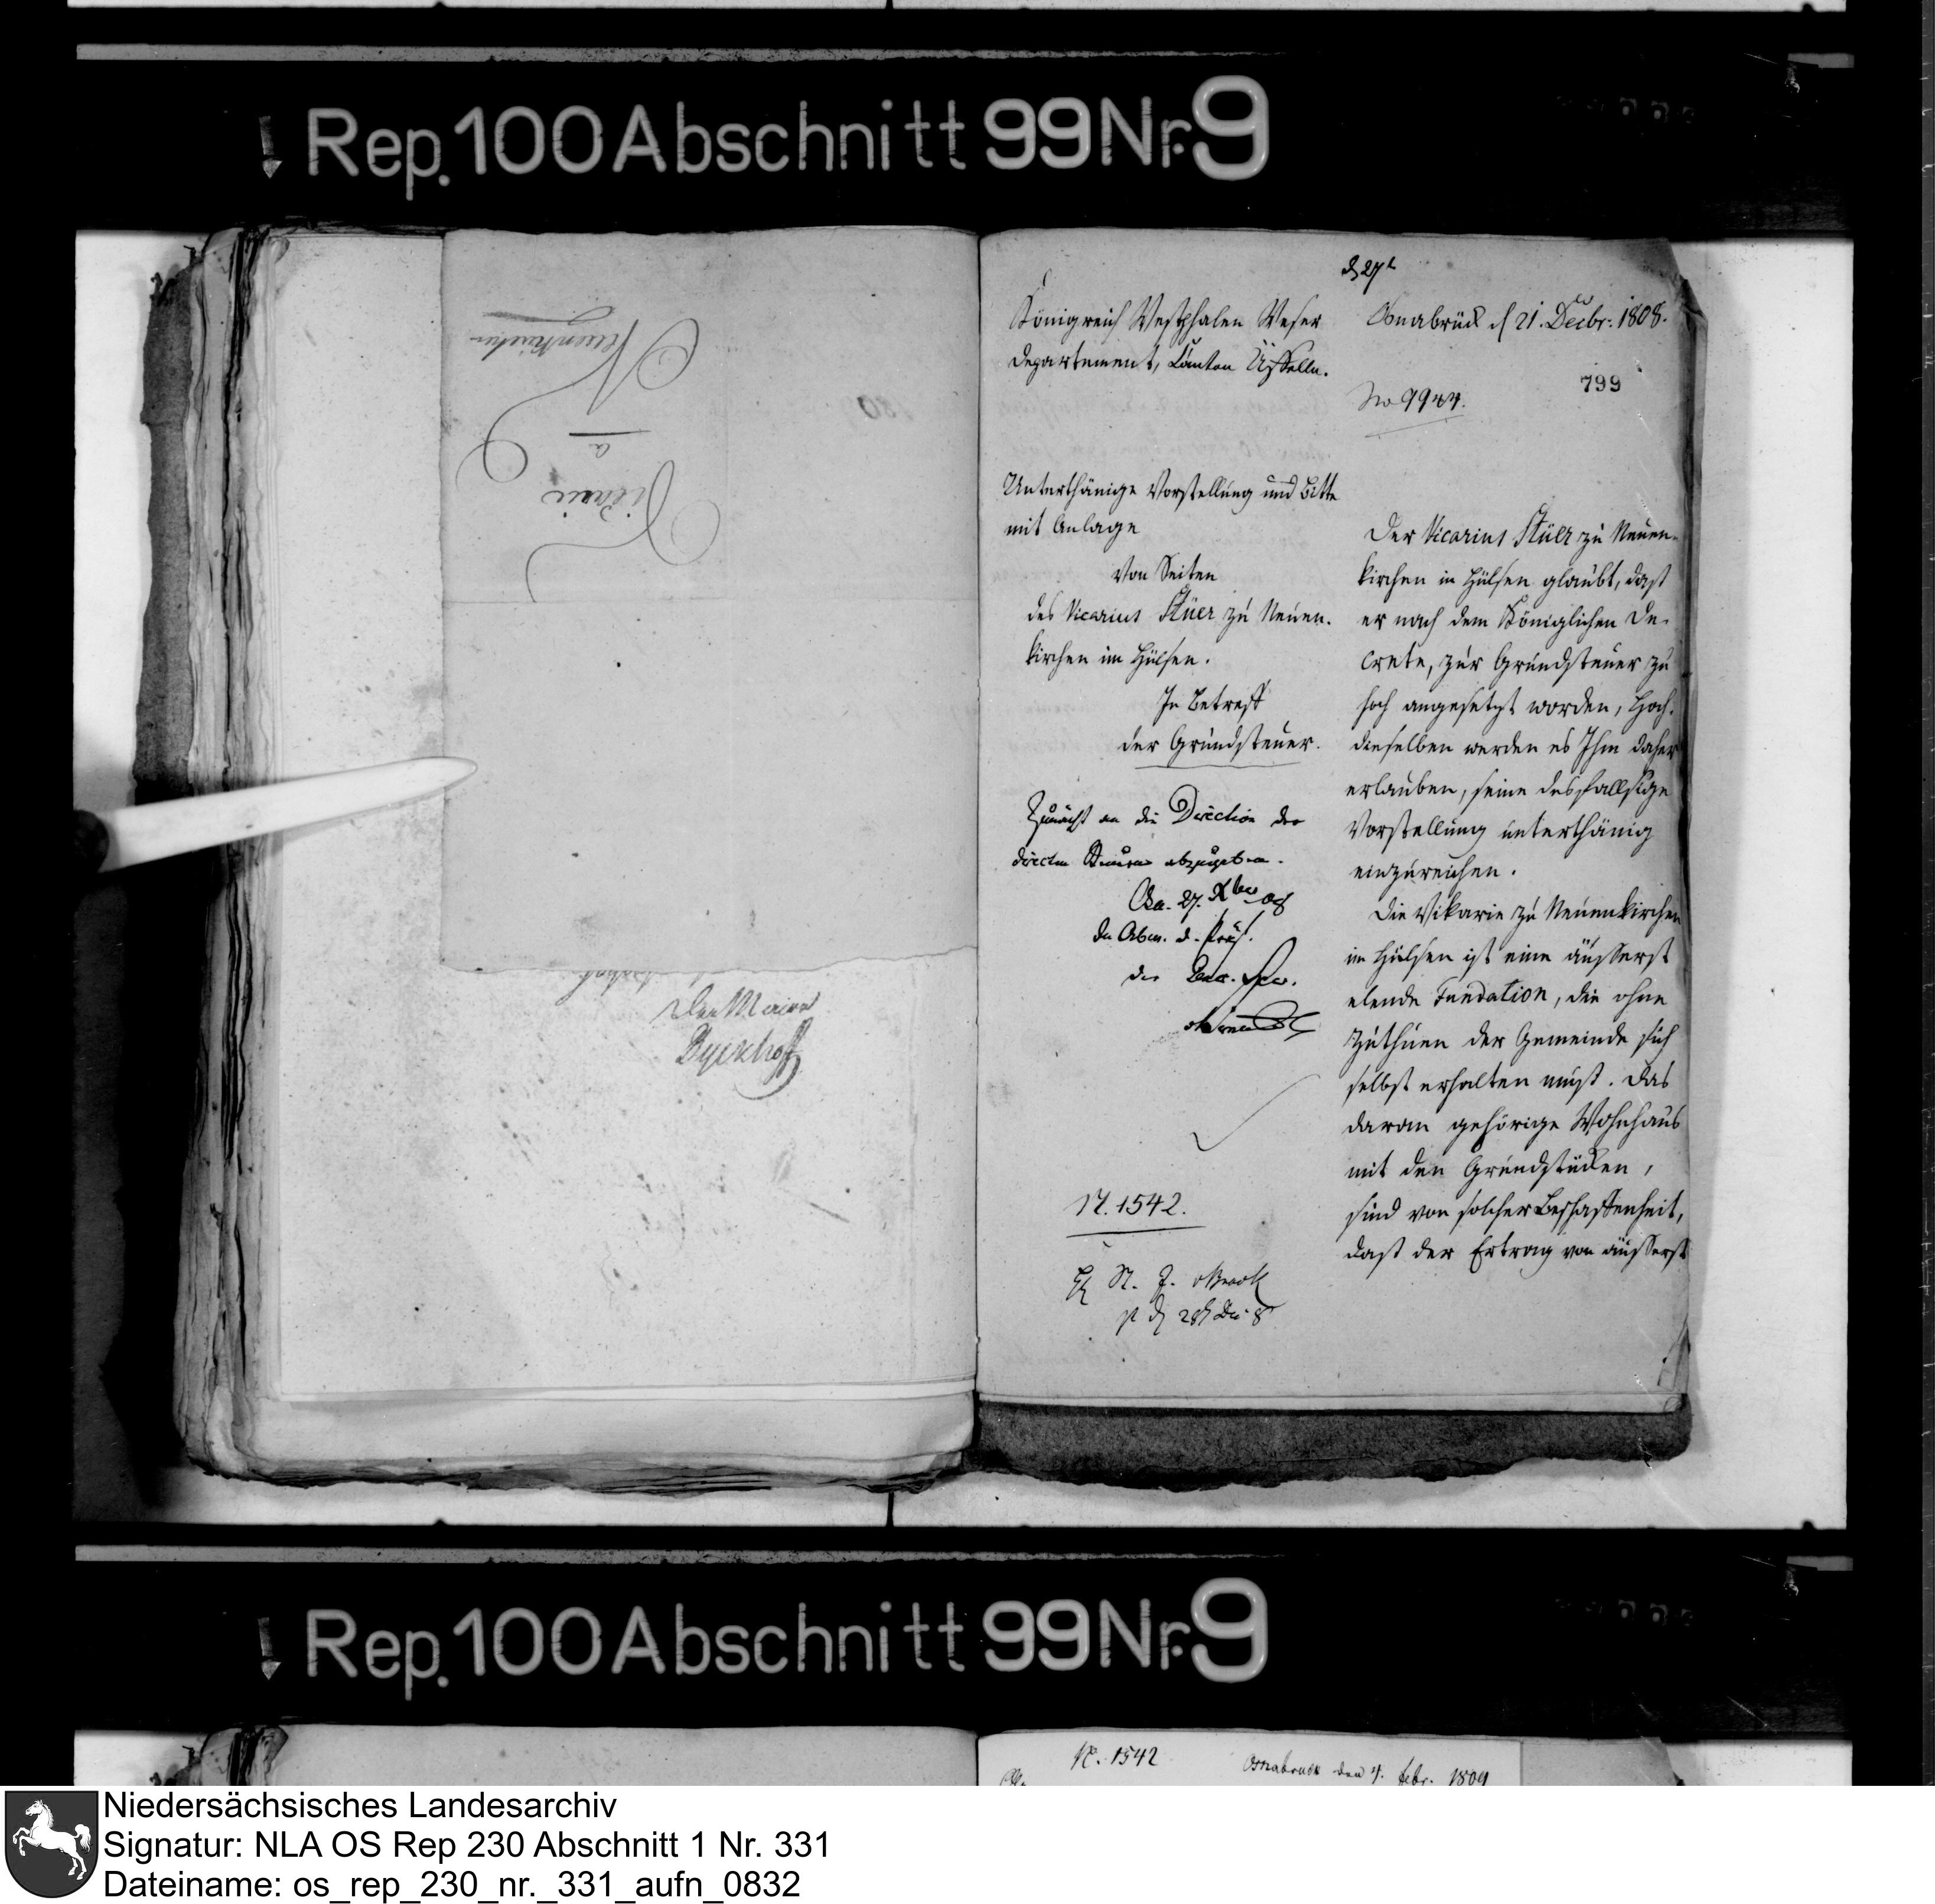 Rep. 100 Abschnitt 99 Nr. 9
Neuenkirchen
a
Vicarie
Der Maire
Dyckhoff
Königreich Westphalen Weser
Departement, Canton Üffeln.
Unterthänige Vorstellung und Bitte
mit Anlage
Von Seiten
des Vicarius Stüer zu Neuen-
kirchen im Hülsen.
In Betreff
der Grundsteuer.
Zunächst an die Direction der
directen Steuern abzugeben.
Osn. 27. Xbr 08
N. 1542.
d 27t
Osnabrück d 21. Decbr. 1808.
No 9944.
799
Der Vicarius Stüer zu Neuen-
kirchen in Hülsen glaubt, daß
er nach dem Königlichen De-
crete, zur Grundsteuer zu
hoch angesetzt worden, Hoch-
dieselben werden es Ihm daher
erlauben, seine desfallsige
Vorstellung unterthänig
einzureichen.
Die Vikarie zu Neuenkirchen
im Hülsen ist eine äusserst
elende Fundation, die ohne
Zuthuen der Gemeinde sich
selbst erhalten muß. Das
daran gehörige Wohnhaus
mit den Grundstücken,
sind von solcher Beschaffenheit,
daß der Ertrag von äusserst
Rep. 100 Abschnitt 99 Nr. 9
N. 1542
Osnabrück den 4. Febr. 1809
Niedersächsisches Landesarchiv
Signatur: NLA OS Rep 230 Abschnitt 1 Nr. 331
Dateiname: os_rep_230_nr._331_aufn_0832